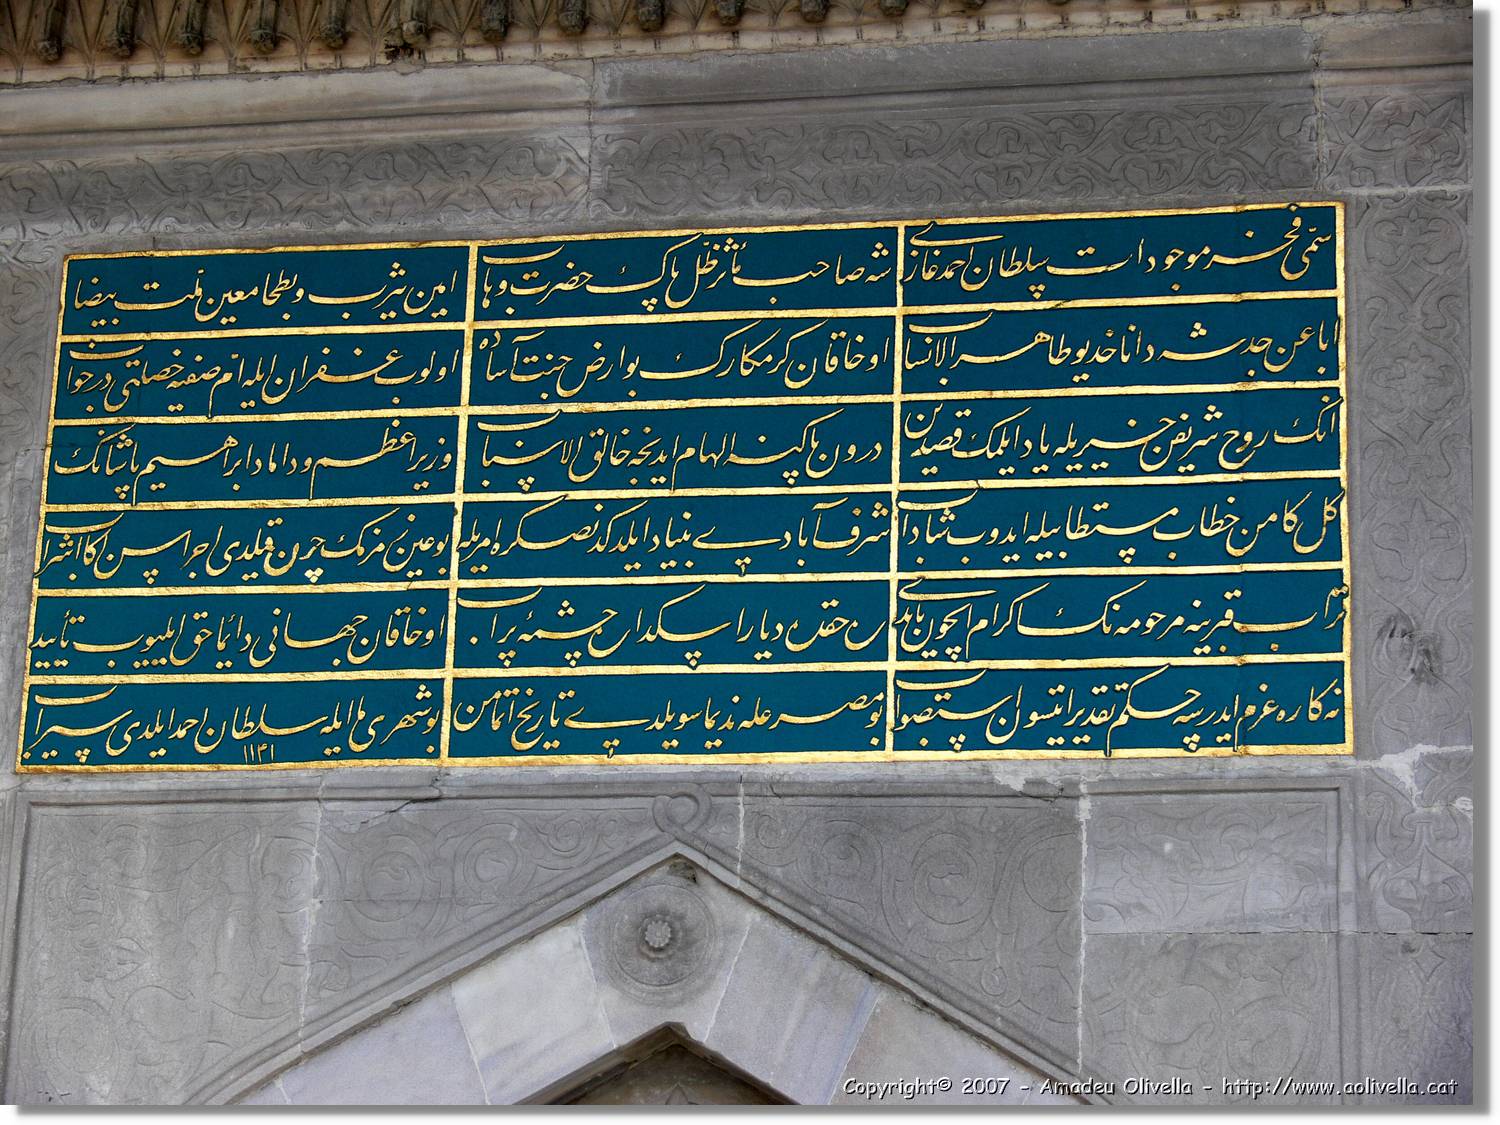 سمّی فخر موجودات سلطان احمد غازی
شه صاحب مأثر ظلّ پاك حضرت وهاب
امین یثرب و بطحا معین ملّت بیضا
ابا عن جد شه دانا خدیو طاهر الانساب
او خاقان كرمكارك بو ارض جنت آساده
اولوب غفران ایله امّ صفیه خصلتی درخواب
انك روح شریفن خیریله یاد ایلمك قصدین
درون پاكینه الهام ایدنجه خالق الاسباب
وزیر اعظم و داماد ابراهیم پاشانك
كمال حسن خطاب مستطابیله ایدوب شاداب
شرف آباد بنیاد ایلدكدنصكره امریله
بو عین زمزمك چرن قیلدی اجراسن اكا اشراب
تراب قبرینه مرحومه نك اكرام ایچون
حقدن دیار اسكدار چشمه پرآب
او خاقان جهانی دائما حق ایلیوب تأیید
نه كاره عزم ایدرسه حكم تقدیر ایتسون استصواب
بو مصرعله ندیما سویلدی تاریخ اتمامن
بو شهری ما ایله سلطان احمد ایلدی سیراب
١١٤١
Copyright© 2007 - Amadeu Olivella - http://www.aolivella.cat